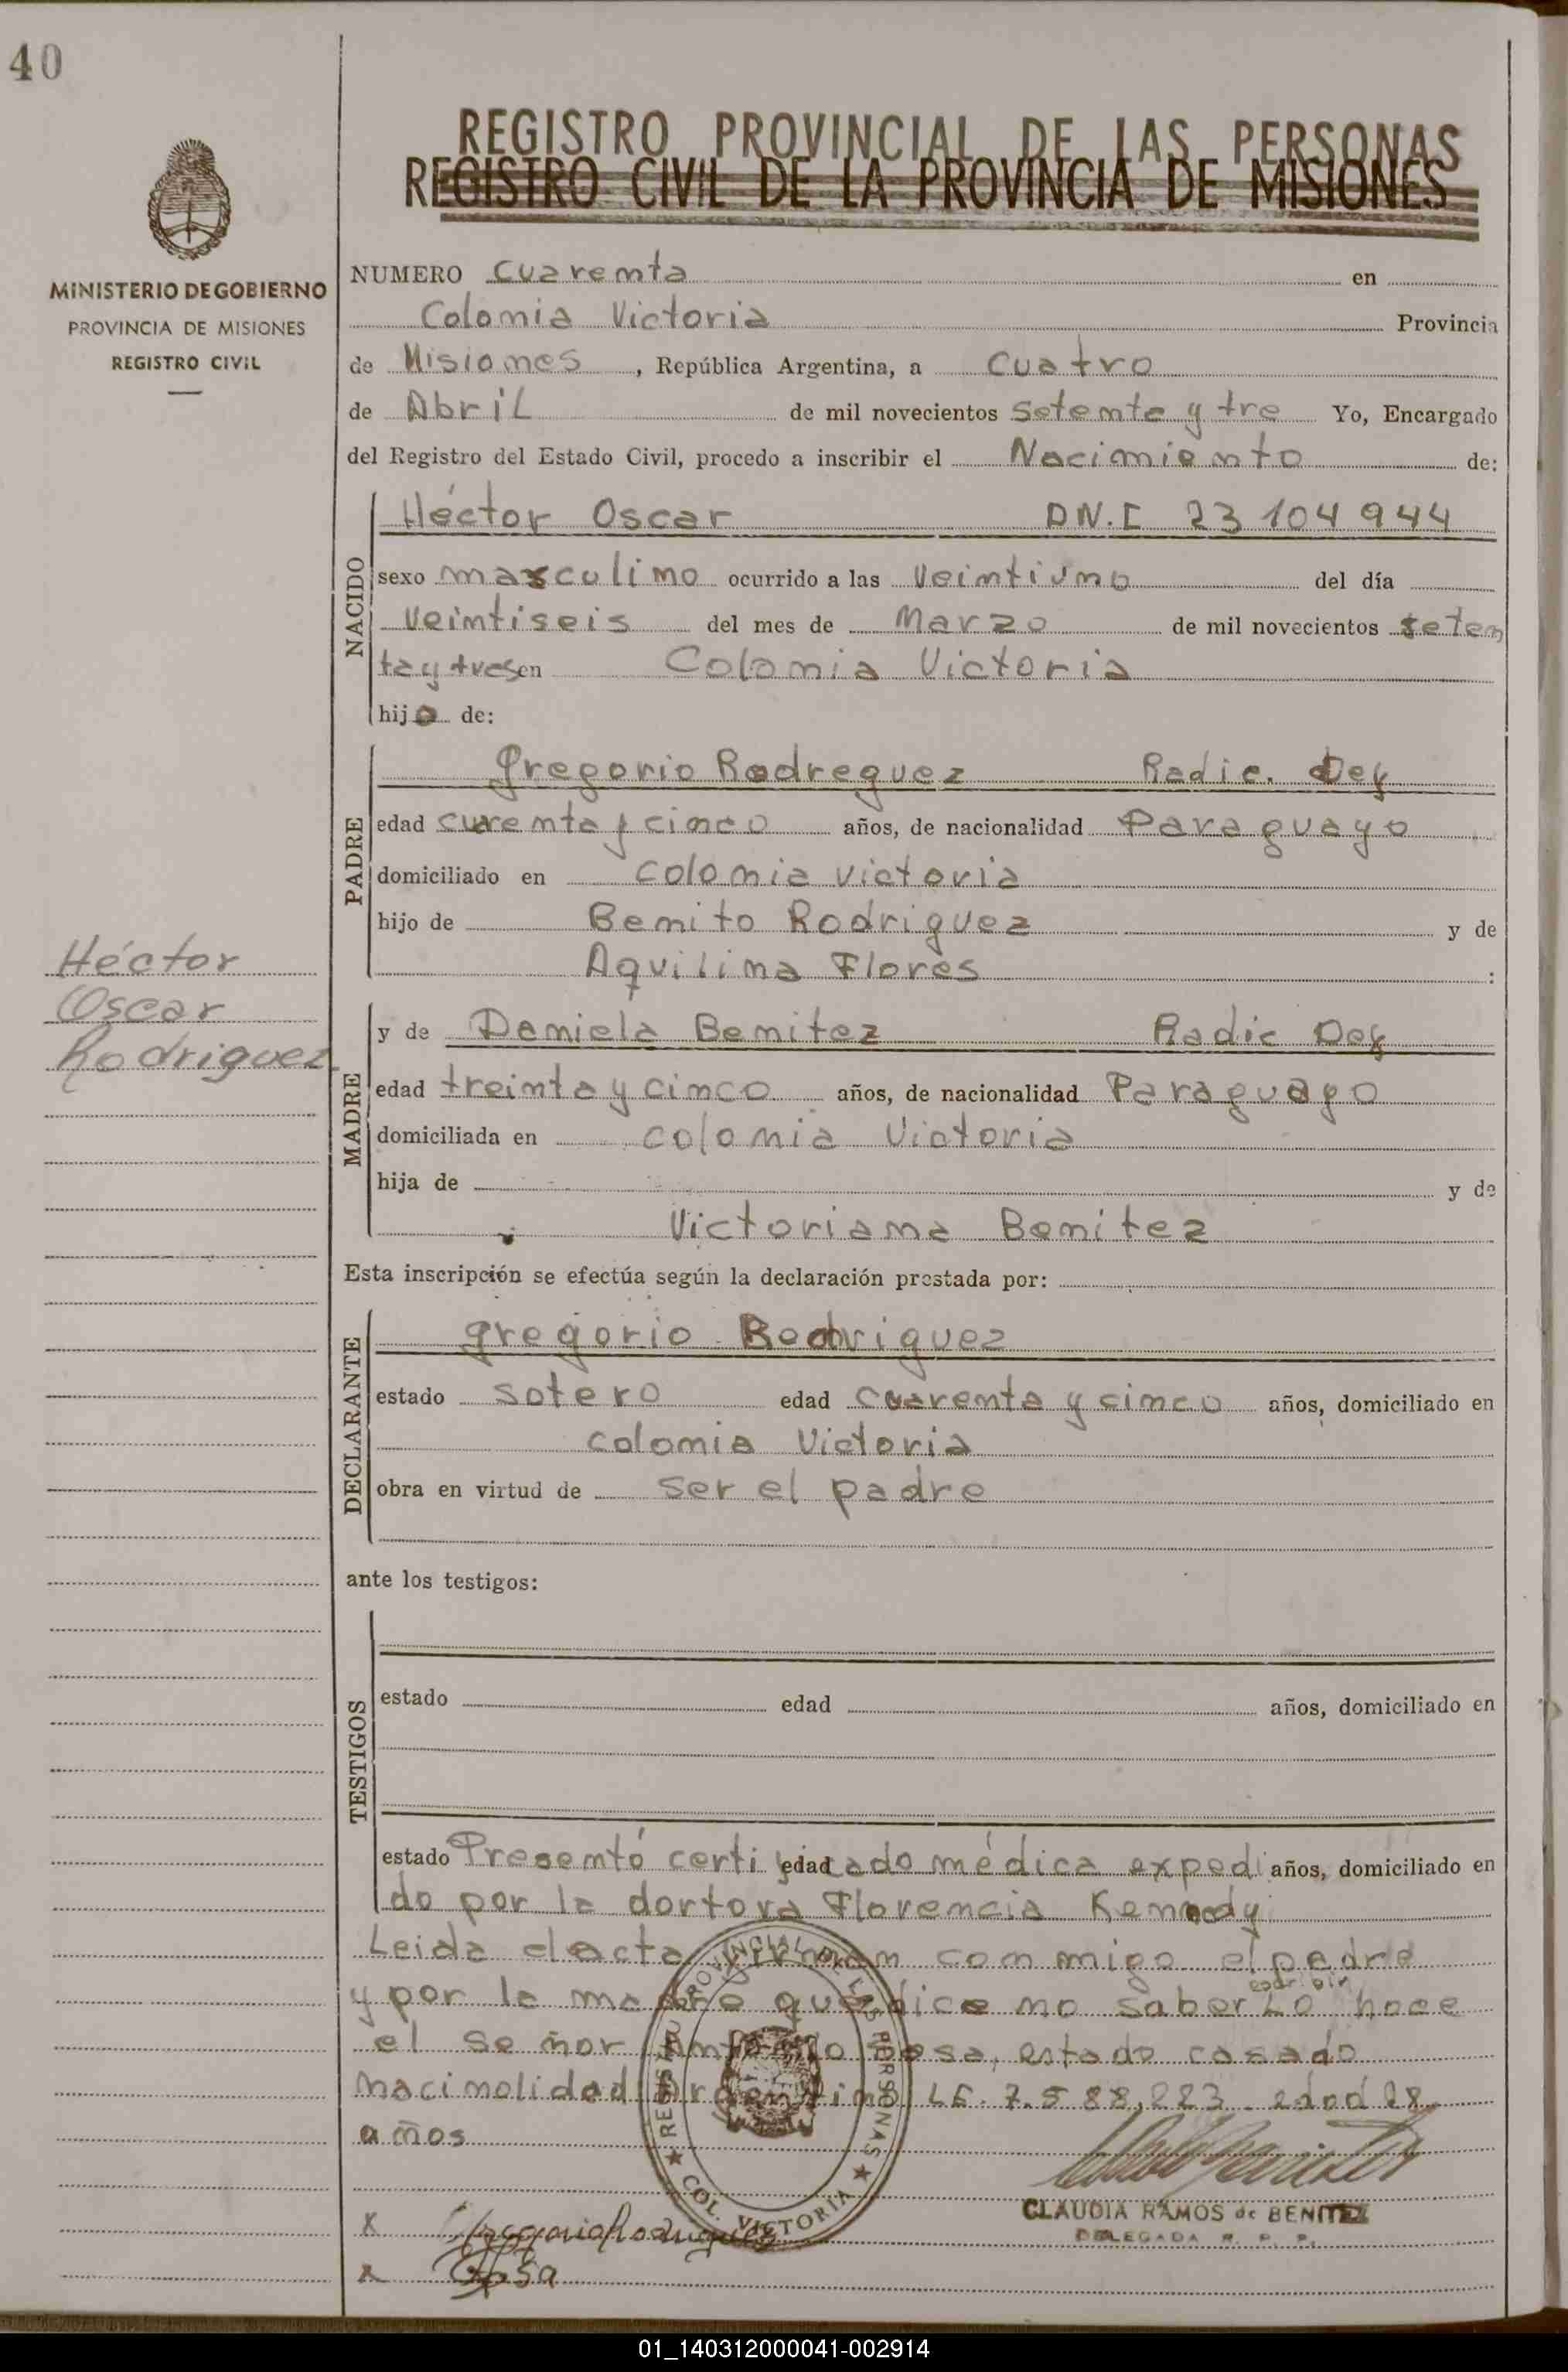 40
REGISTRO PROVINCIAL DE LAS PERSONAS
REGISTRO CIVIL DE LA PROVINCIA DE MISIONES
MINISTERIO DE GOBIERNO
PROVINCIA DE MISIONES
REGISTRO CIVIL
NUMERO cuarenta en
Colonia Victoria Provincia
de Misiones, República Argentina, a cuatro
de Abril de mil novecientos setenta y tre Yo, Encargado
del Registro del Estado Civil, procedo a inscribir el Nacimiento de:
NACIDO
Héctor Oscar DN.I 23 104 944
sexo masculino ocurrido a las veintiuno del día
veintiseis del mes de Marzo de mil novecientos seten
ta y tres en Colonia Victoria
hijo de:
PADRE
Gregorio Rodreguez Radic. Def
edad curenta y cinco años, de nacionalidad Paraguayo
domiciliado en colonia victoria
hijo de Benito Rodriguez y de
Aquilina Flores :
Héctor
Oscar
Rodriguez
MADRE
y de Daniela Benitez Radic Def
edad treinta y cinco años, de nacionalidad Paraguayo
domiciliada en colonia Victoria
hija de y de
Victoriana Benitez
Esta inscripción se efectúa según la declaración prestada por:
DECLARANTE
gregorio Rodriguez
estado sotero edad cuarenta y cinco años, domiciliado en
colonia Victoria
obra en virtud de ser el padre
ante los testigos:
TESTIGOS
estado edad años, domiciliado en
estado Presentó certificado edad médica expedi años, domiciliado en
do por la dortora Florencia Kennedy
Leida el acta firman con migo el padre
escribir
y por la madre que dice no saber Lo hace
el señor Antonio Sosa, estado casado
nacinolidad Argentino LE. 7.588,223. edad 28
años
REGISTRO PROVINCIAL DE LAS PERSONAS
★ COL. VICTORIA ★
CLAUDIA RAMOS de BENITEZ
DELEGADA R. P. P.
X Gregorio Rodriguez
X Sosa
01_140312000041-002914